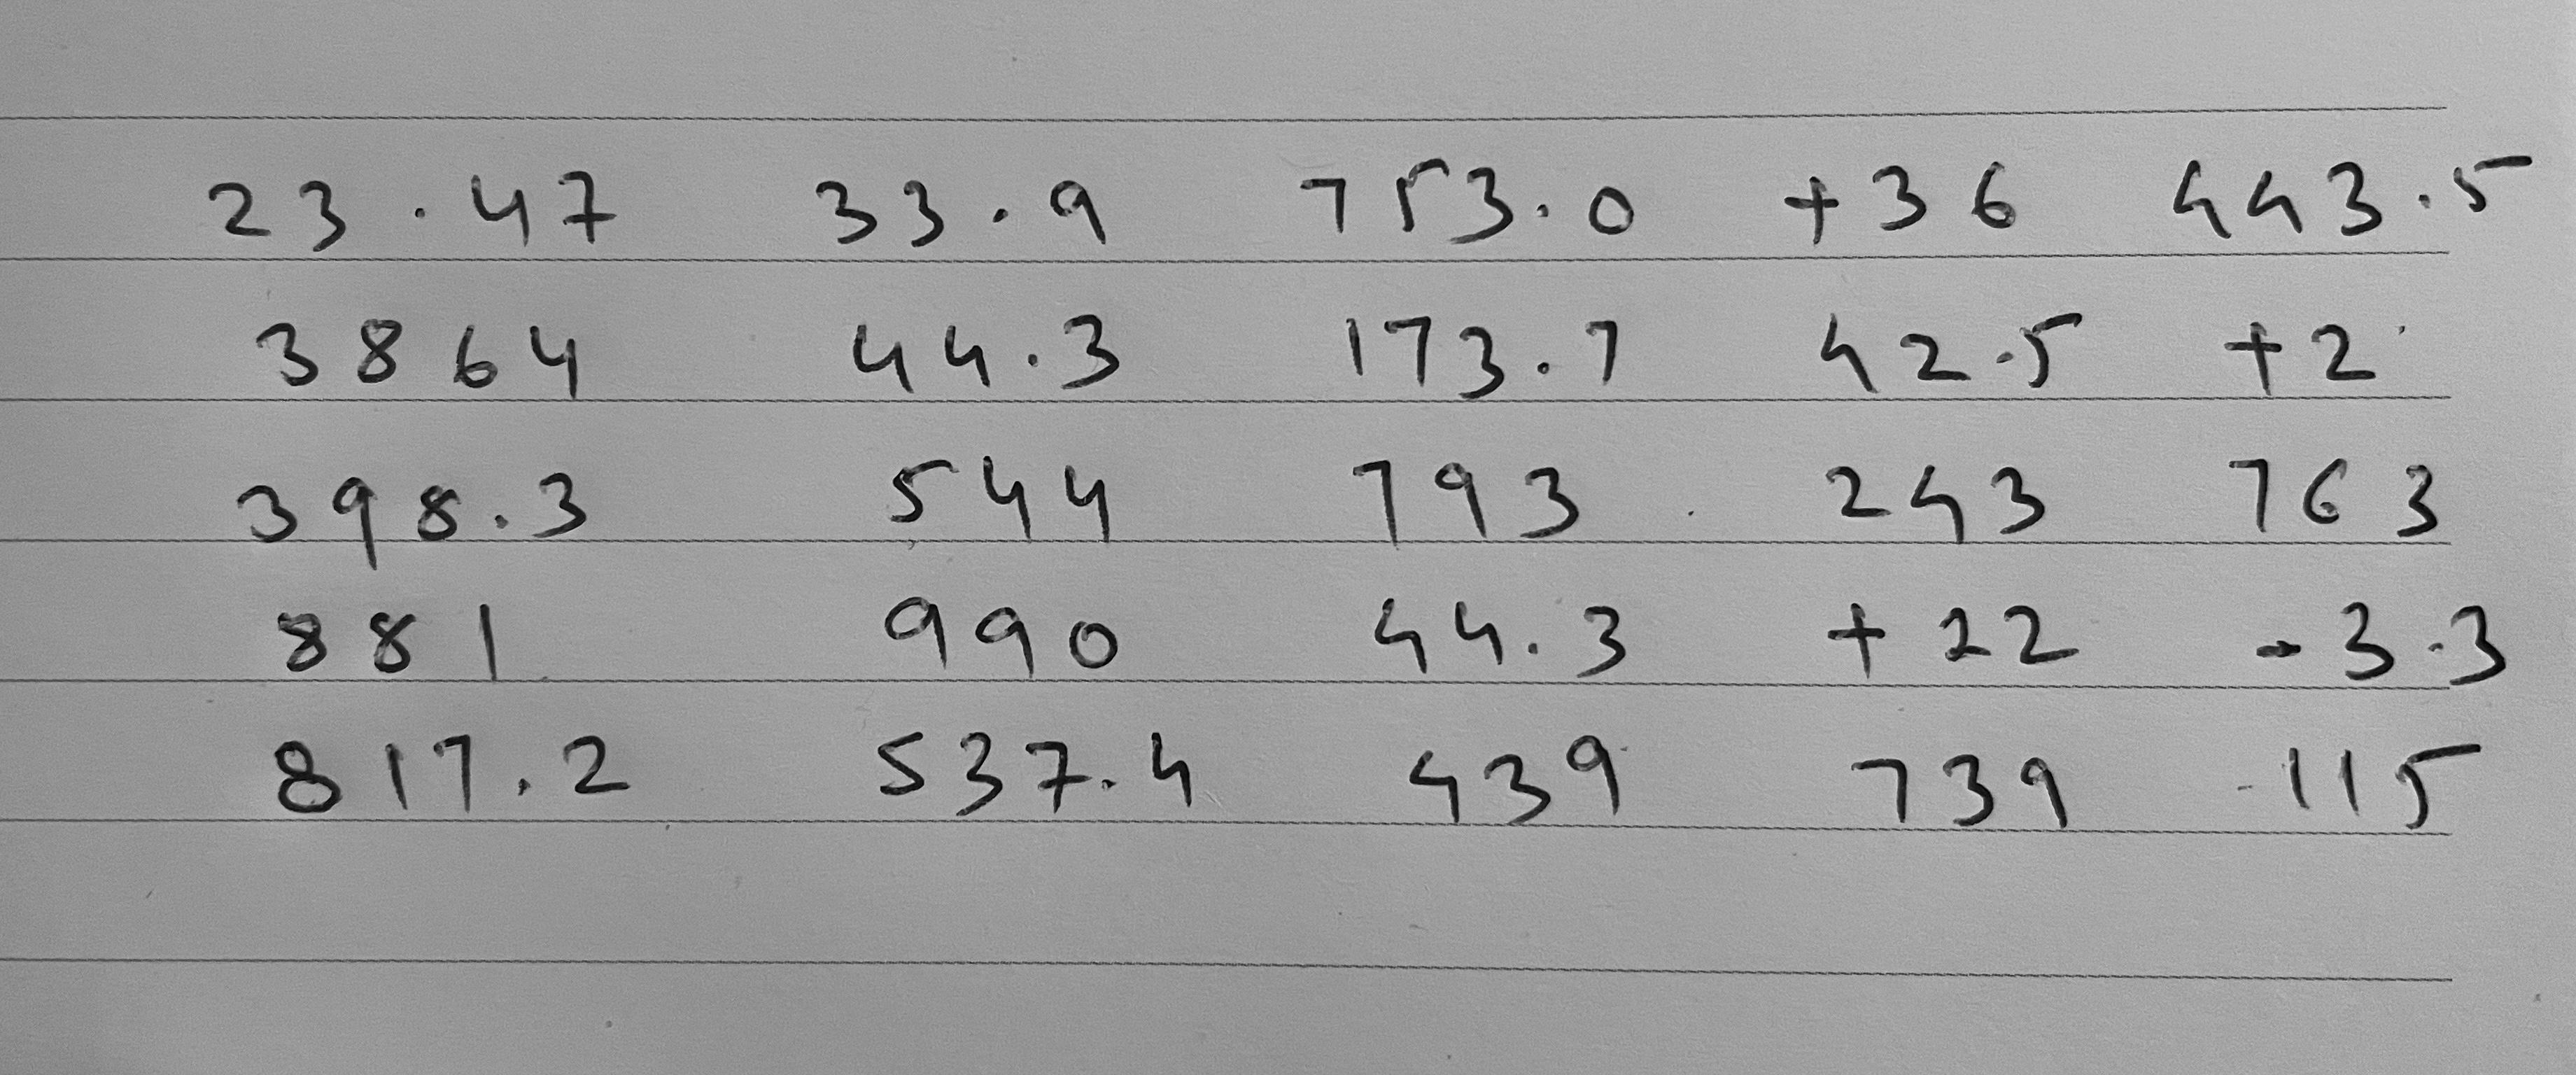 23.47 33.9 753.0 +36 443.5
3864 44.3 173.7 42.5 +2
398.3 544 793 243 763
881 990 44.3 +22 -3.3
817.2 537.4 439 739 -115